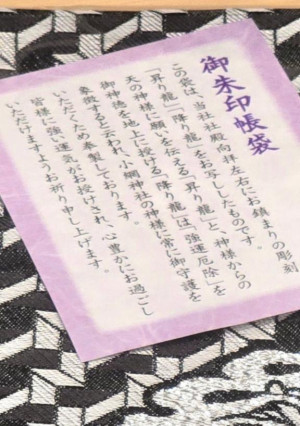 御朱印帳袋
この袋は、当社社殿向拝左右にお鎮まりの彫刻
「昇り龍」「降り龍」をお写ししたものです。
天の神様に願いを伝える「昇り龍」と、神様からの
御神徳を地上に授ける「降り龍」は、「強運厄除」を
象徴すると云われ、小網神社の神様に常に御守護を
いただくため奉製しております。
皆様に強い運気がお授けされ、心豊かにお過ごし
いただけますようお祈り申し上げます。